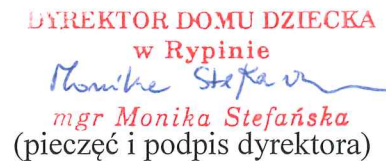 DYREKTOR DOMU DZIECKA
w Rypinie
Monika Stefańska
mgr Monika Stefańska
(pieczęć i podpis dyrektora)